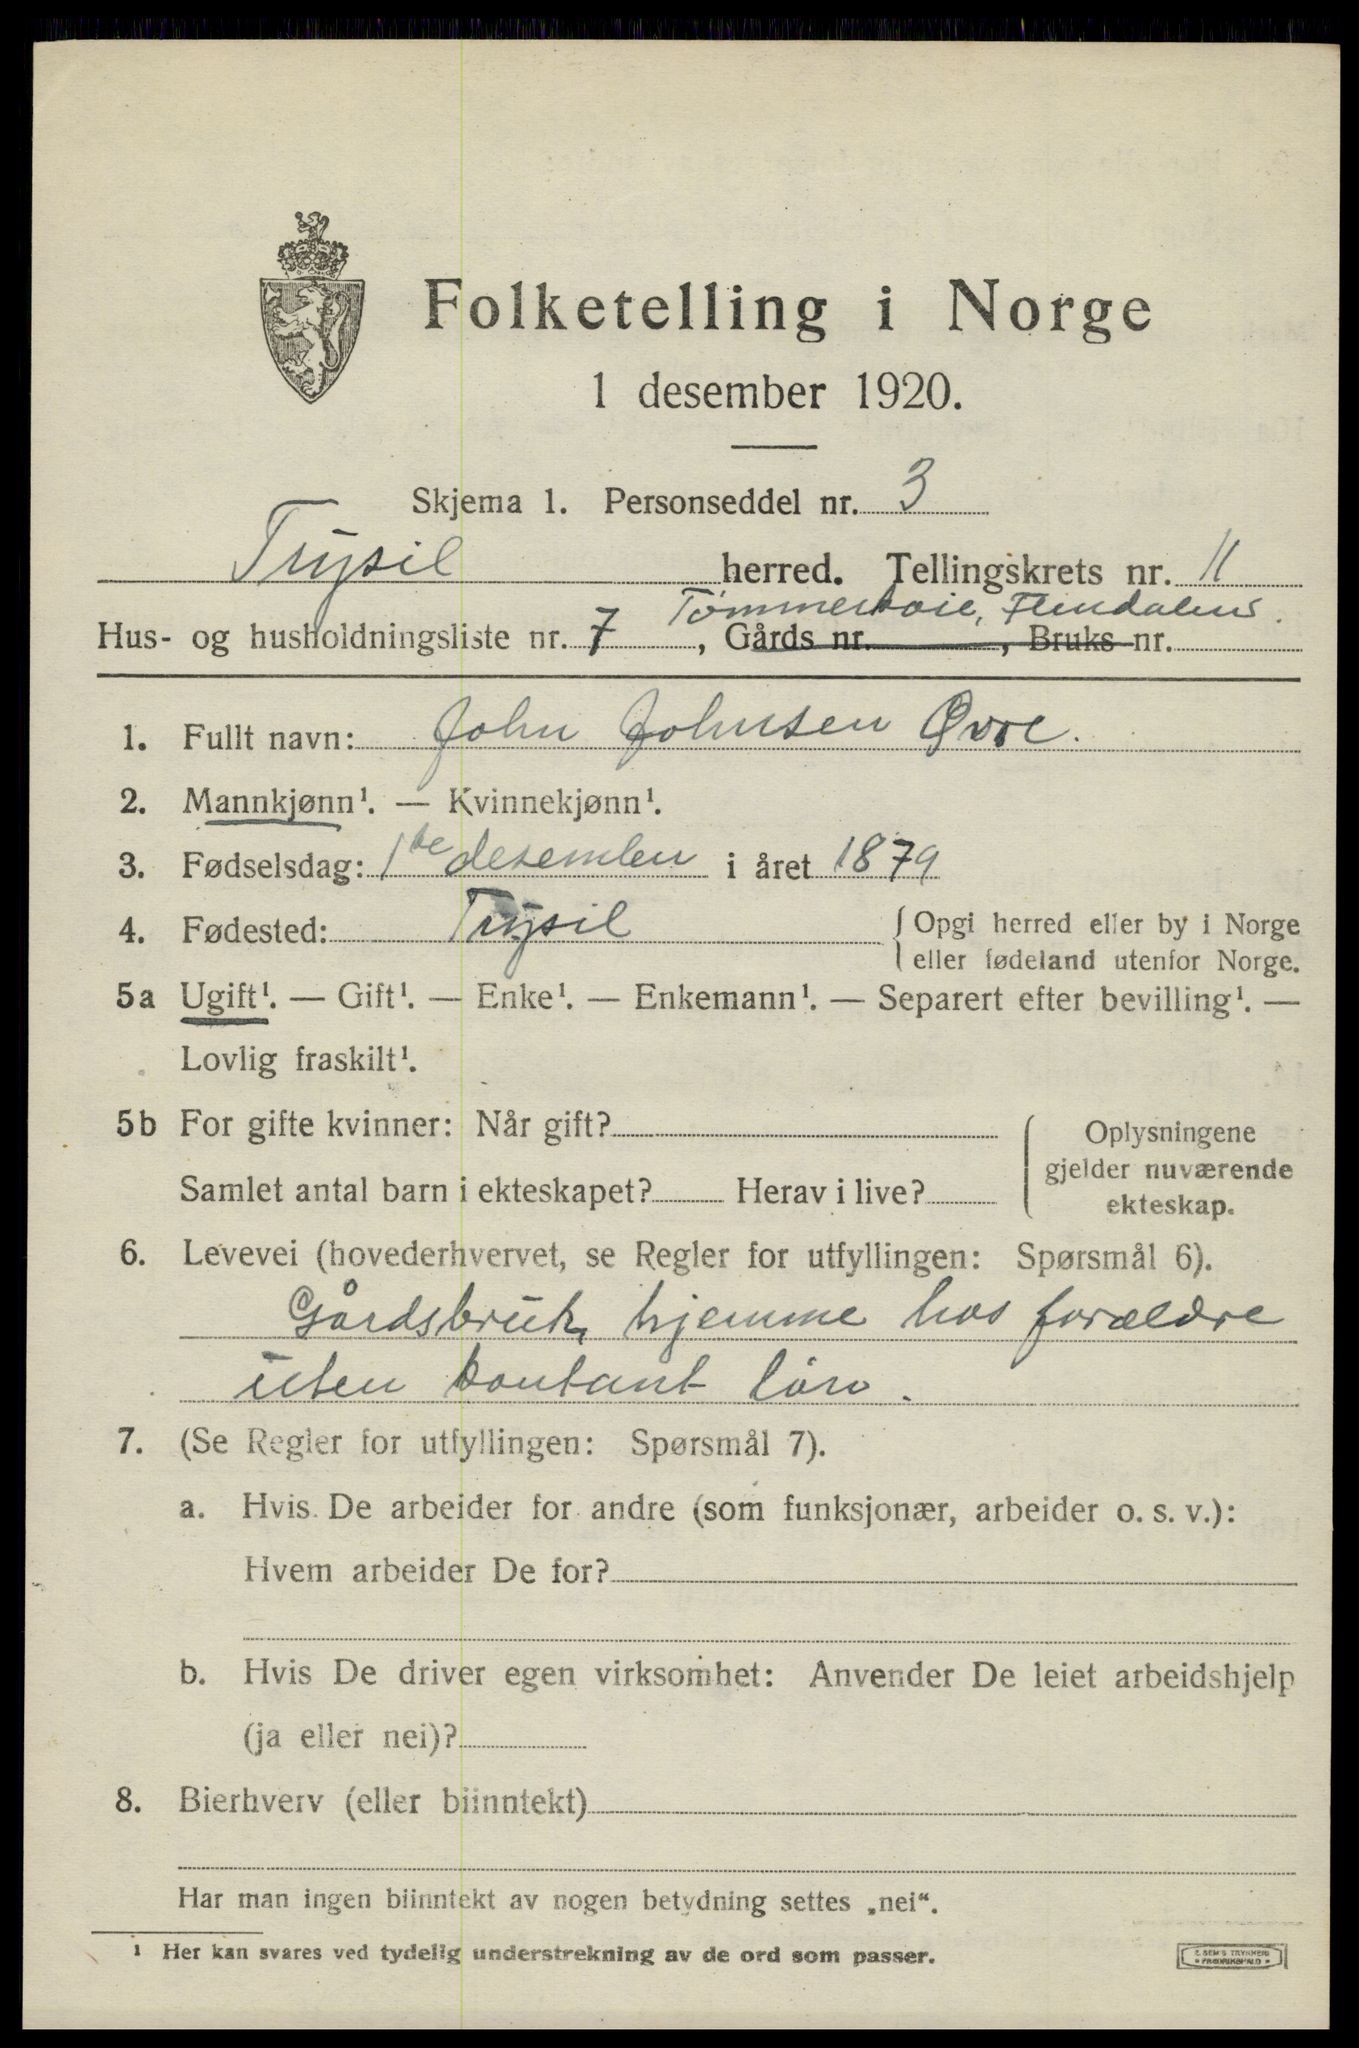 Folketelling i Norge
1 desember 1920.
Skjema 1. Personseddel nr. 3
Trysil herred. Tellingskrets nr. 11
Tømmerkoie, Flendalen.
Hus- og husholdningsliste nr. 7, Gårds nr. , Bruks nr.
1. Fullt navn: John Johnsen Øvre.
2. Mannkjønn¹. — Kvinnekjønn¹.
3. Fødselsdag: 1ste desember i året 1879
4. Fødested: Trysil {Opgi herred eller by i Norge
eller fødeland utenfor Norge.
5a Ugift¹. — Gift¹. — Enke¹. — Enkemann¹. — Separert efter bevilling¹. —
Lovlig fraskilt¹.
5b For gifte kvinner: Når gift? Oplysningene
gjelder nuværende
Samlet antal barn i ekteskapet? Herav i live?
ekteskap.
6. Levevei (hovederhvervet, se Regler for utfyllingen: Spørsmål 6).
Gårdsbruk, hjemme hos forældre
uten kontant løn.
7. (Se Regler for utfyllingen: Spørsmål 7).
a. Hvis De arbeider for andre (som funksjonær, arbeider o. s. v.):
Hvem arbeider De for?
b. Hvis De driver egen virksomhet: Anvender De leiet arbeidshjelp
(ja eller nei)?
8. Bierhverv (eller biinntekt)
Har man ingen biinntekt av nogen betydning settes „nei“.
¹ Her kan svares ved tydelig understrekning av de ord som passer.
E. SEM'S TRYKKERI
FREDRIKSHALD